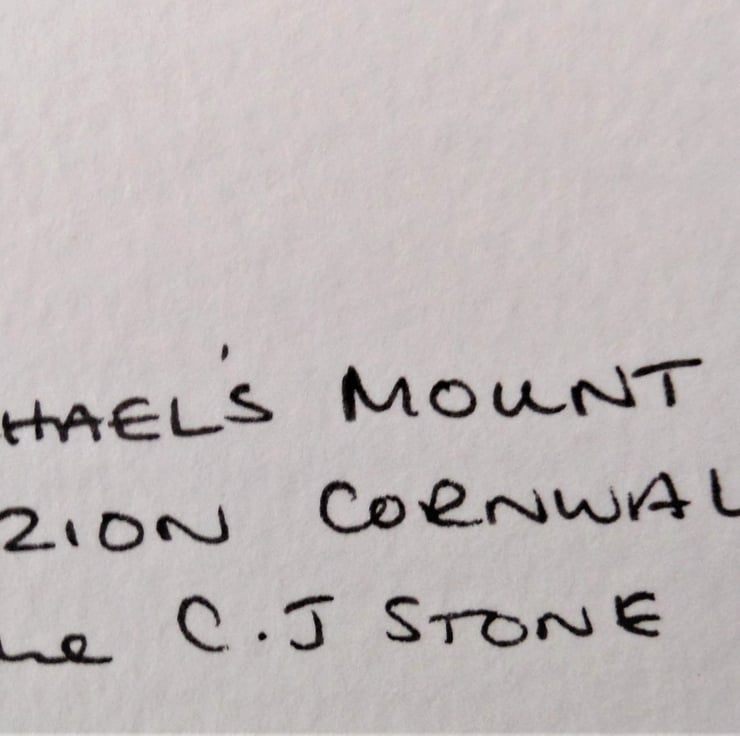 HAEL'S MOUNT
ZION CORNWAL
C.J STONE